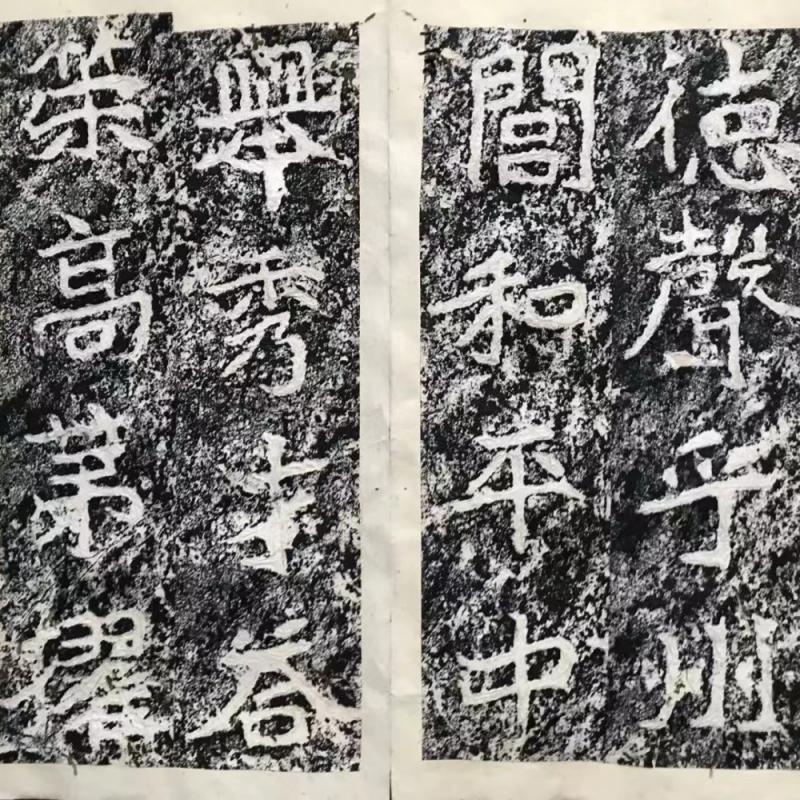 德聲乎州
閭和平中
舉秀才答
策高第擢